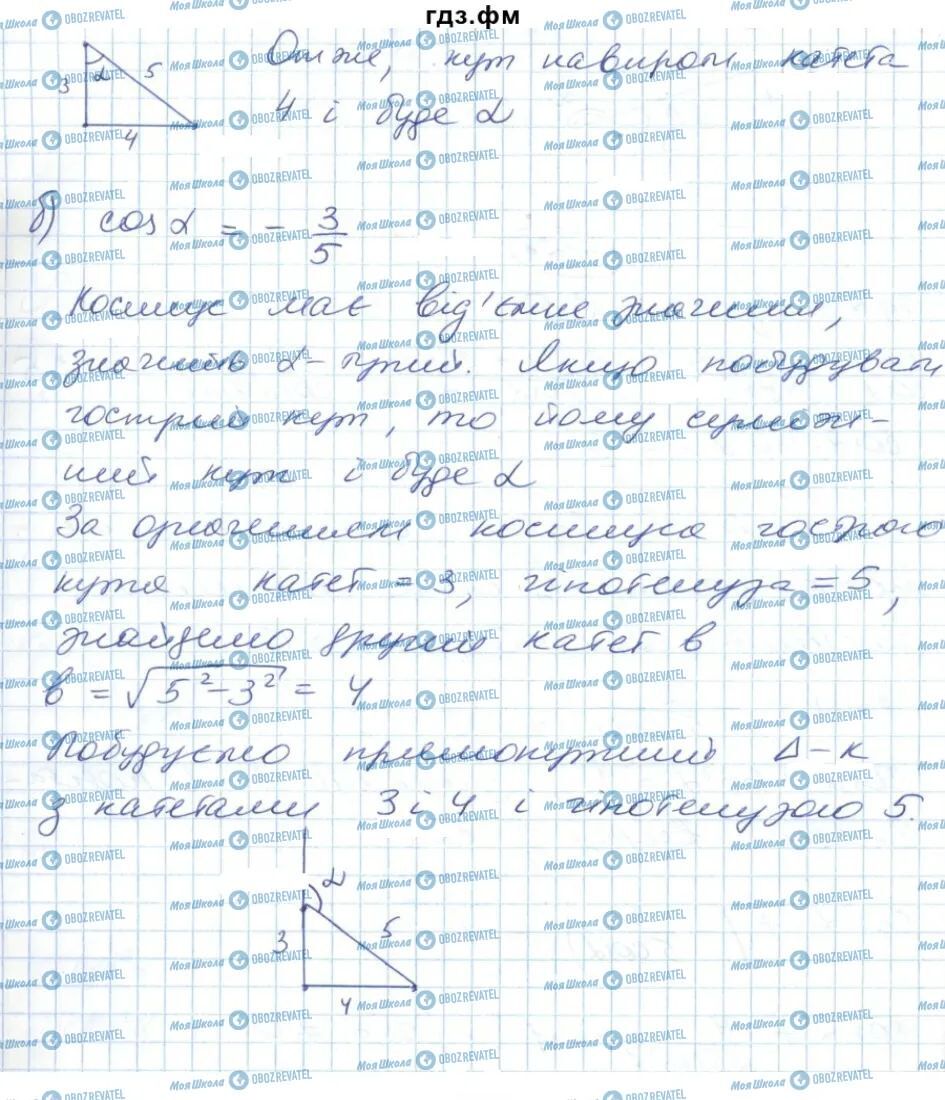 гдз.фм
Отже, кут навпроти катета
4 і буде α
3 α 5
4
б) cos α = - 3/5
Косинус має від'ємне значення,
значить α - тупий. Якщо побудувати
гострий кут, то йому суміж-
ний кут і буде α
За означенням косинуса гострого
кута катет = 3, гіпотенуза = 5,
знайдемо другий катет в
в = √5² - 3² = 4
Побудуємо прямокутний Δ-к
з катетами 3 і 4 і гіпотенузою 5.
α
3 5
4
МояШкола OBOZREVATEL